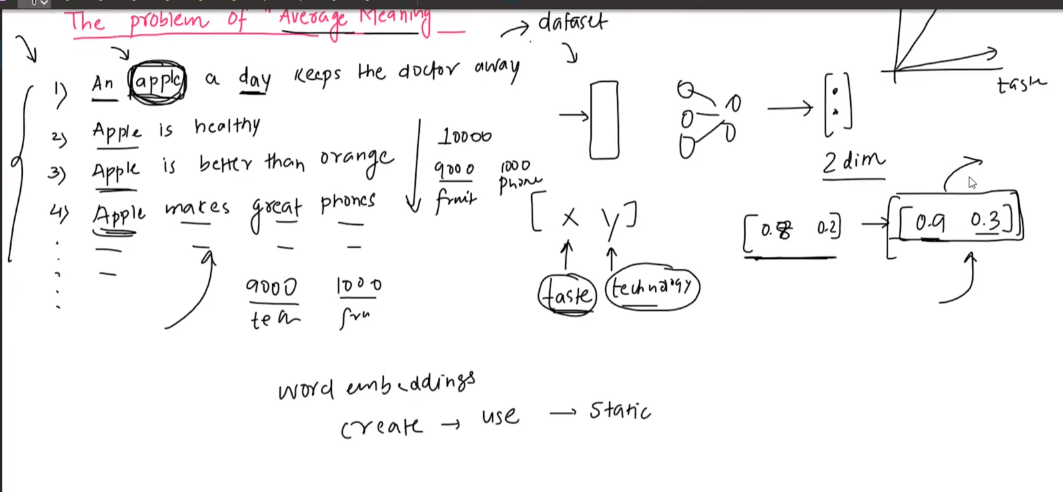 The problem of "Average Meaning
→ dataset
1) An apple a day keeps the doctor away
2) Apple is healthy
3) Apple is better than orange
4) Apple makes great phones
10000
9000 1000
fruit phone
9000 1000
tech fru
[ x y ]
taste technology
2 dim
[0.8 0.2] → [0.9 0.3]
taste
word embeddings
create → use → static